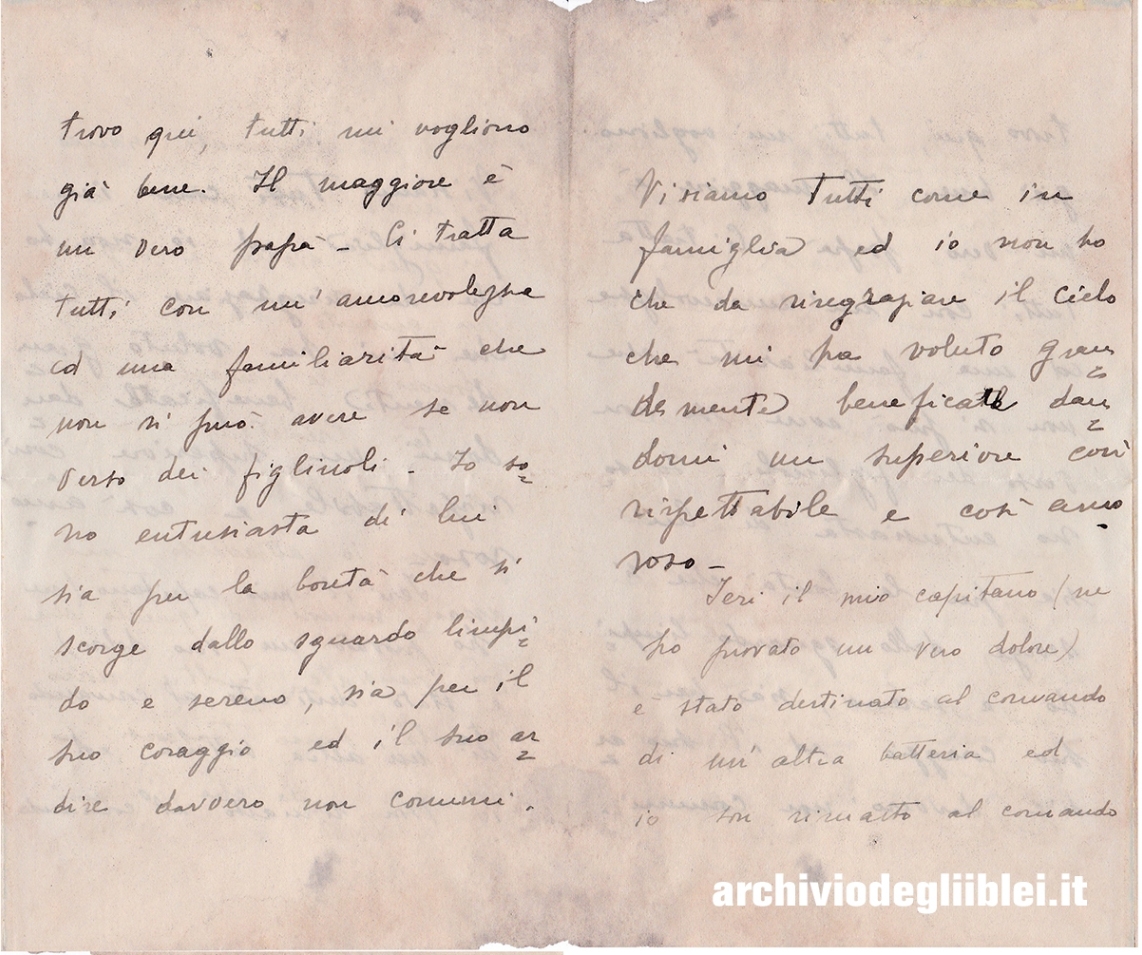 trovo qui, tutti mi vogliono
già bene. Il maggiore è
un vero papà - Ci tratta
tutti con un'amorevolezza
ed una familiarità che
non si può avere se non
verso dei figliuoli - Io so=
no entusiasta di lui
sia per la bontà che si
scorge dallo sguardo limpi=
do e sereno, sia per il
suo coraggio ed il suo ar=
dire davvero non comuni.
Viviamo tutti come in
famiglia ed io non ho
che da ringraziare il Cielo
che mi ha voluto gran=
demente beneficare dan=
domi un superiore così
rispettabile e così amo
roso -
Ieri il mio capitano (ne
ho provato un vero dolore)
è stato destinato al comando
di un'altra batteria ed
io son rimasto al comando
archiviodegliiblei.it